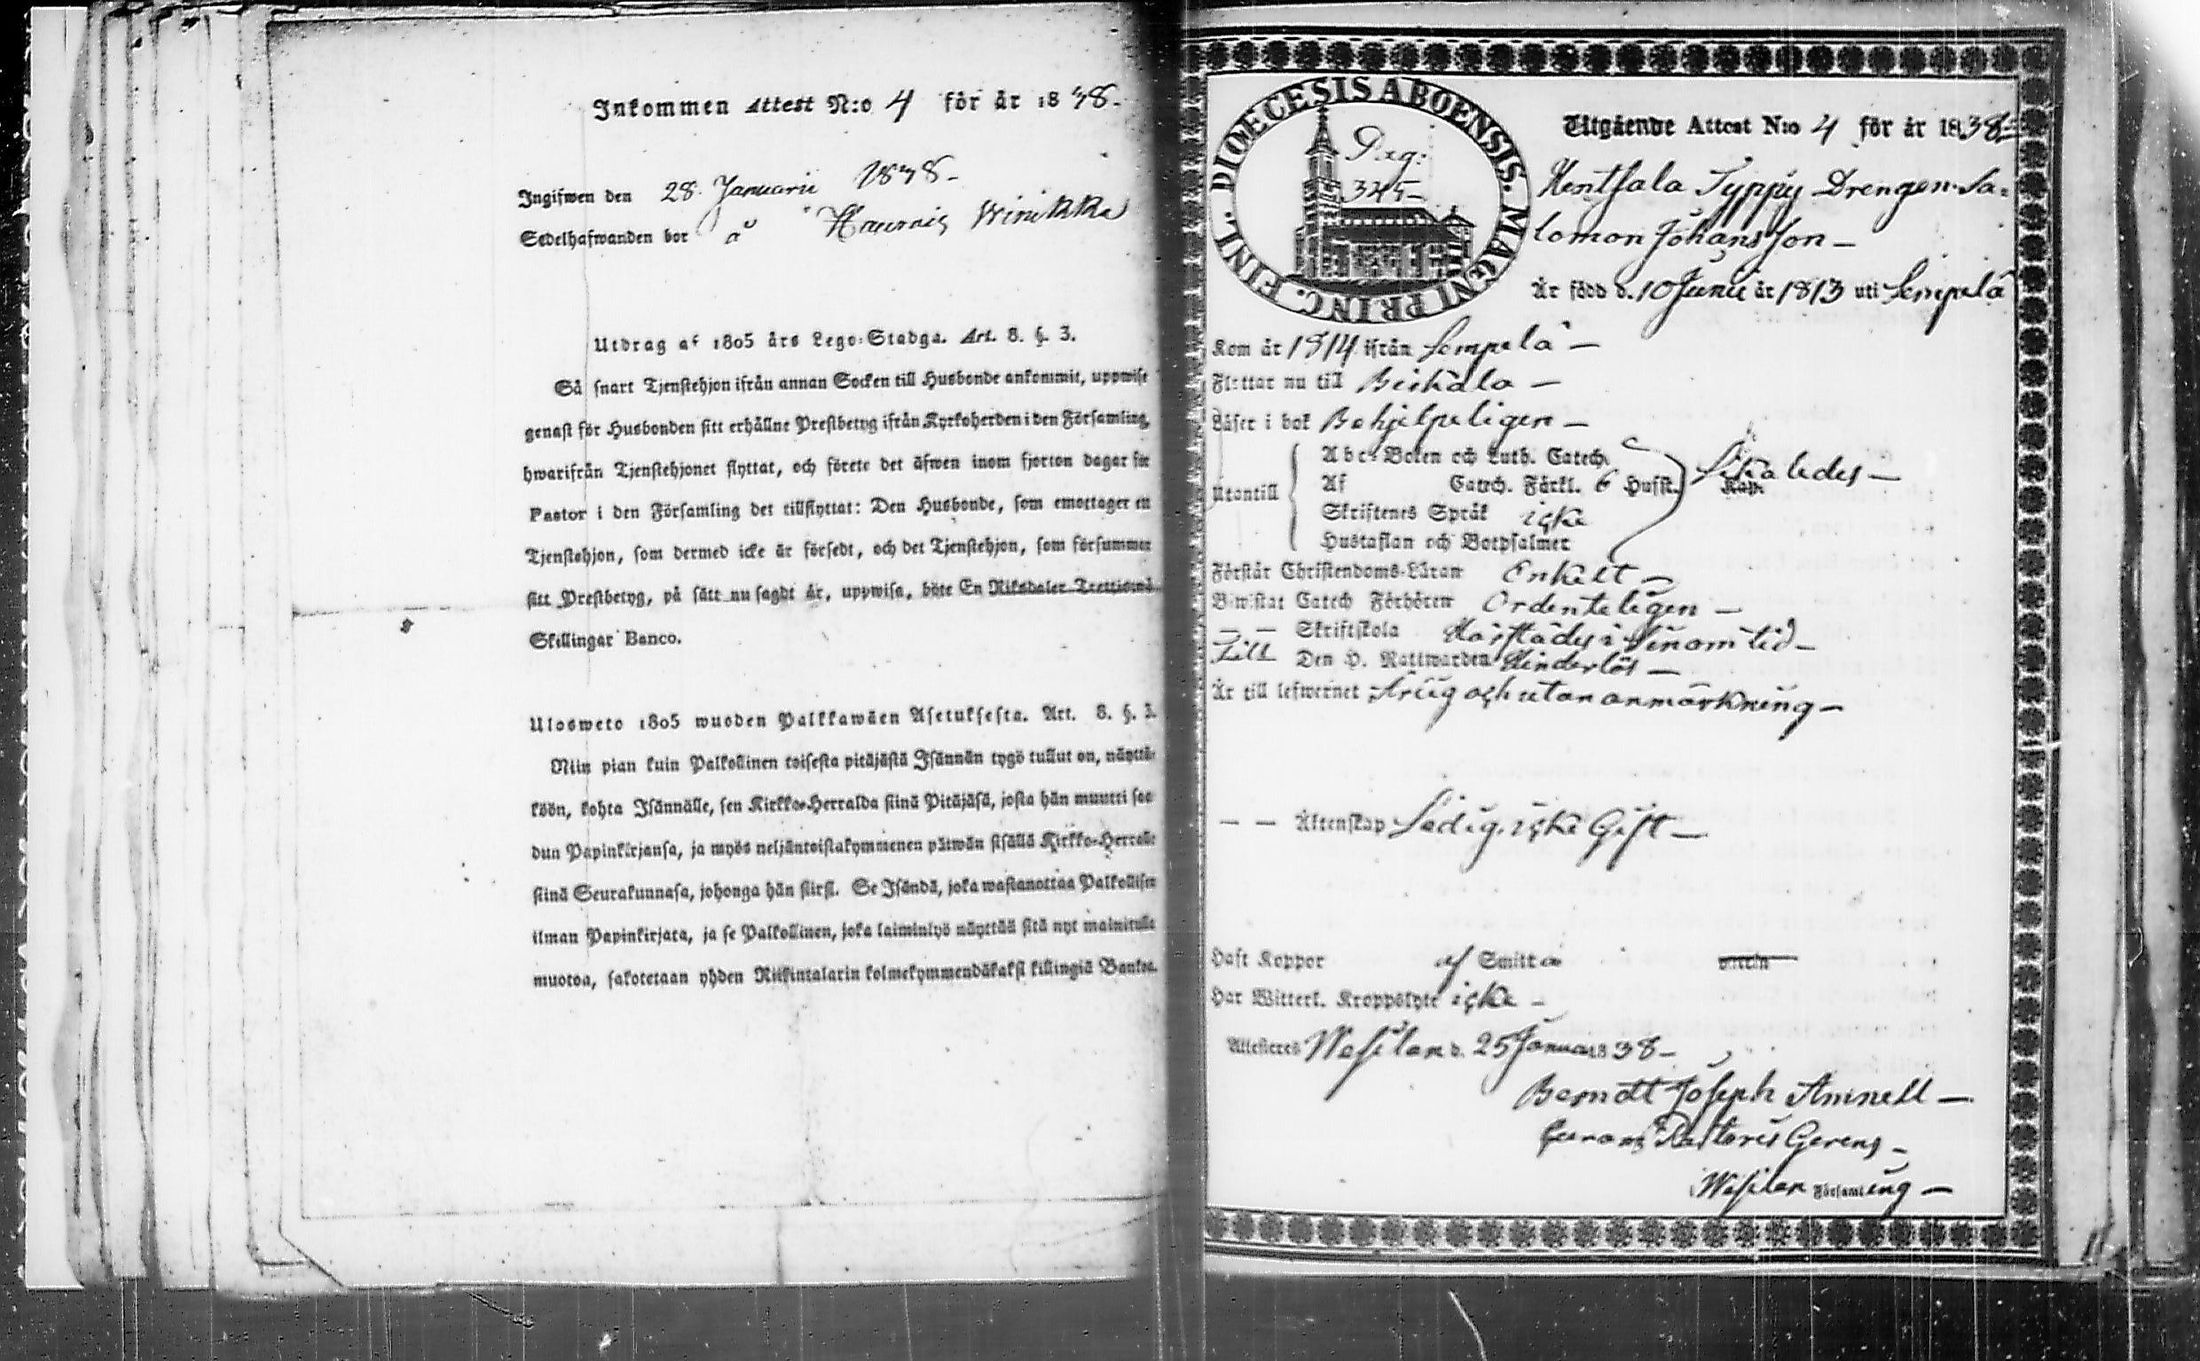 Inkommen Attest N:o 4 för år 1838.
Ingifwen den 28. Januarii 1838.
Sedelhafwanden bor å Haurnis Winikka
Utdrag af 1805 års Lego-Stadga. Art. 8. §. 3.
Så snart Tjenstehjon ifrån annan Socken till Husbonde ankommit, uppwise
genast för Husbonden sitt erhållne Prestbetyg ifrån Kyrkoherden i den Församling,
hwarifrån Tjenstehjonet flyttat, och förete det äfwen inom fjorton dagar för
Pastor i den Församling det tillflyttat: Den Husbonde, som emottager en
Tjenstehjon, som dermed icke är försedt, och det Tjenstehjon, som försummer
sitt Prestbetyg, på sätt nu sagdt är, uppwisa, böte En Riksdaler Trettiotwå
Skillingar Banco.
Ulosweto 1805 wuoden Palkkawäen Asetuksesta. Art. 8. §. 3.
Niin pian kuin Palkollinen toisesta pitäjästä Isännän tygö tullut on, näyttä-
köön, kohta Isännälle, sen Kirkko-Herralda siinä Pitäjäsä, josta hän muutti saa-
dun Papinkirjansa, ja myös neljäntoistakymmenen päiwän sisällä Kirkko-Herralle
siinä Seurakunnasa, johonga hän siirsi. Se Isändä, joka wastanottaa Palkollisen
ilman Papinkirjata, ja se Palkollinen, joka laiminlyö näyttää sitä nyt mainitulla
muotoa, sakotetaan yhden Riikintalarin kolmekymmendäkaksi killingiä Bankoa.
FINL. DIOECESIS ABOENSIS. MAGNI PRINC.
Pag:
345
Utgående Attest N:o 4 för år 1838
Hentsala Typpy Drengen Sa=
lomon Johansson
Är född d. 10 Junii år 1813 uti Lempälä
Kom år 1814 ifrån Lempälä
Flyttar nu till Birkala
Läser i bok Behjelpeligen
Utantill
Abc-Boken och Luth. Catech.
Af Catech. Förkl. 6 Hufst. Kap.
Likaledes
Skriftenes Språk icke
Hustaflan och Botpsalmer
Förstår Christendoms-Läran Enkelt
Biwistat Catech Förhören Ordenteligen
— — Skriftskola
Till Den H. Nattwarden Hinderlös
Är till lefwernet Ärlig och utan anmärkning
— — Äktenskap Ledig, icke Gift
Haft Koppor af Smittan
Har Witterl. Kroppslyte icke
Attesteres Wesilax d. 25 Janua 1838
Berndt Joseph Aminell
Pastoris Gerens
i Wesilax Församling
11